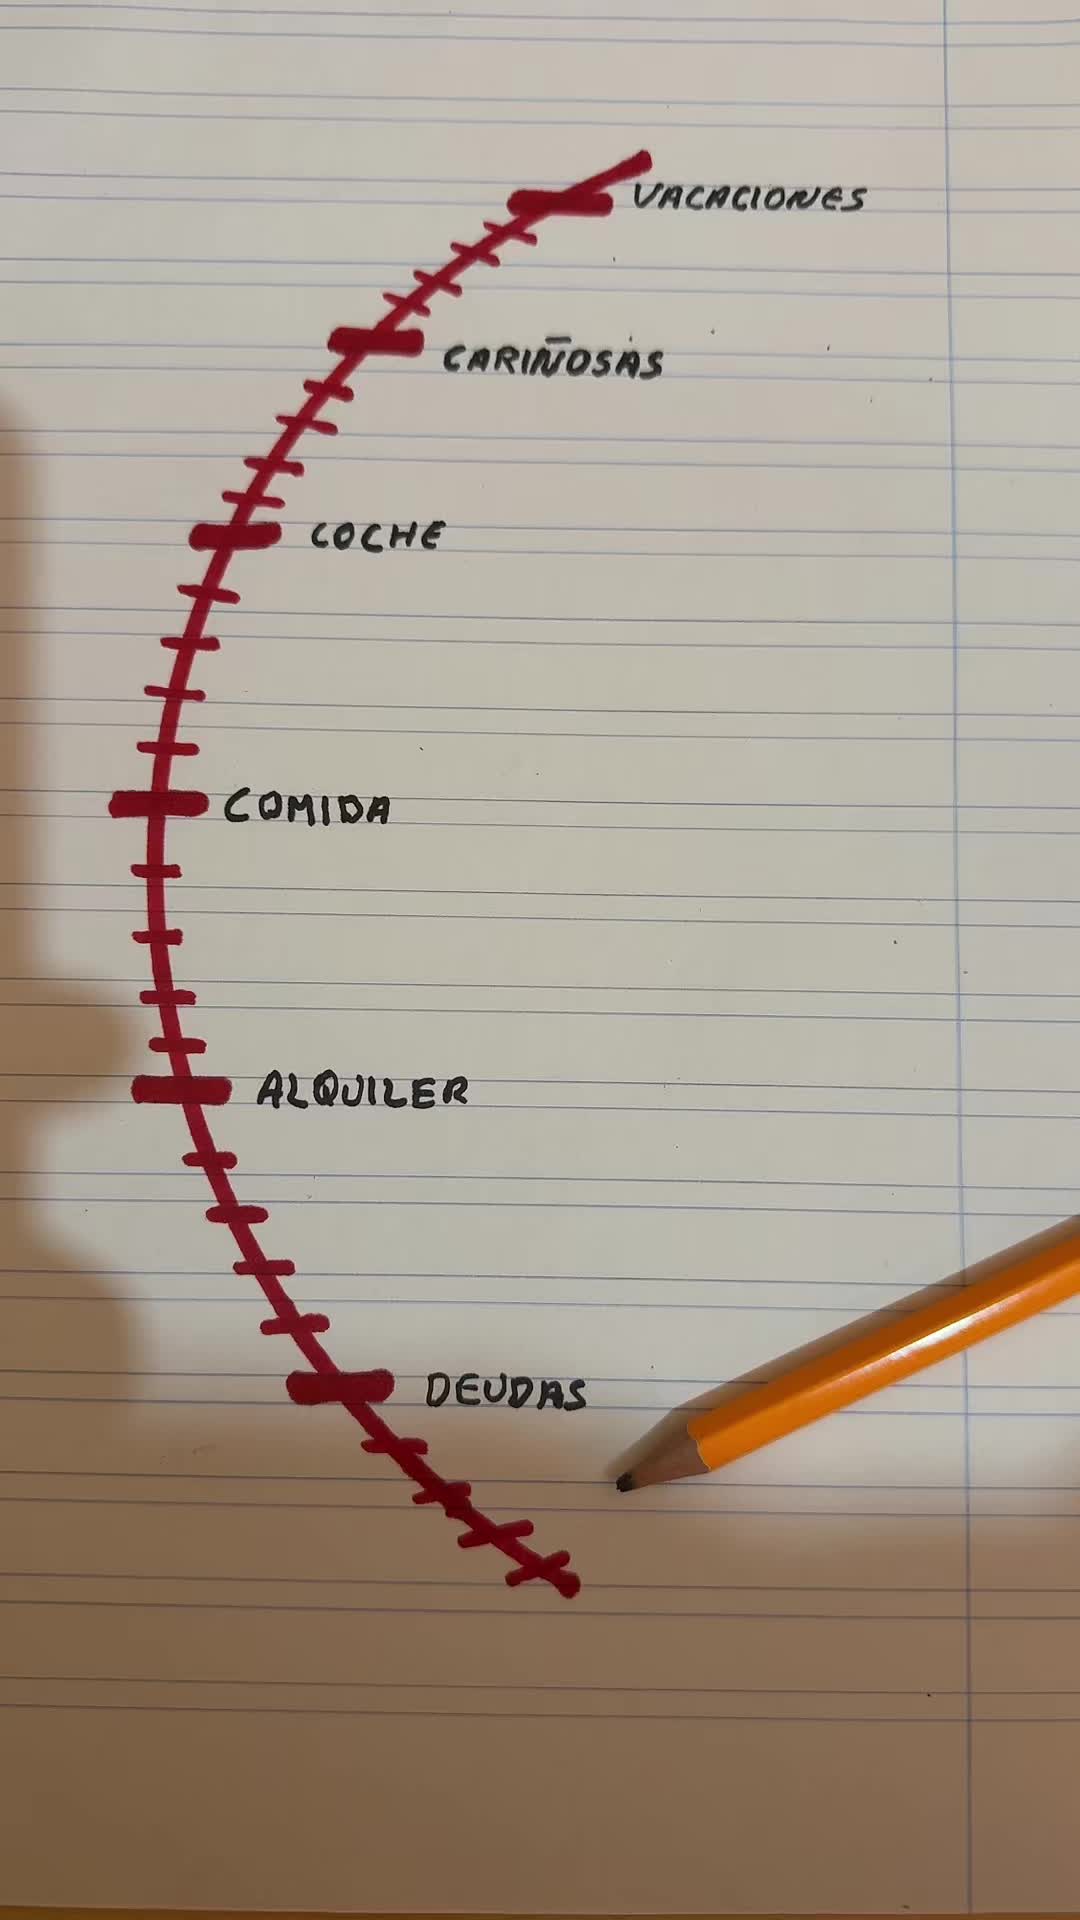 VACACIONES
CARIÑOSAS
COCHE
COMIDA
ALQUILER
DEUDAS